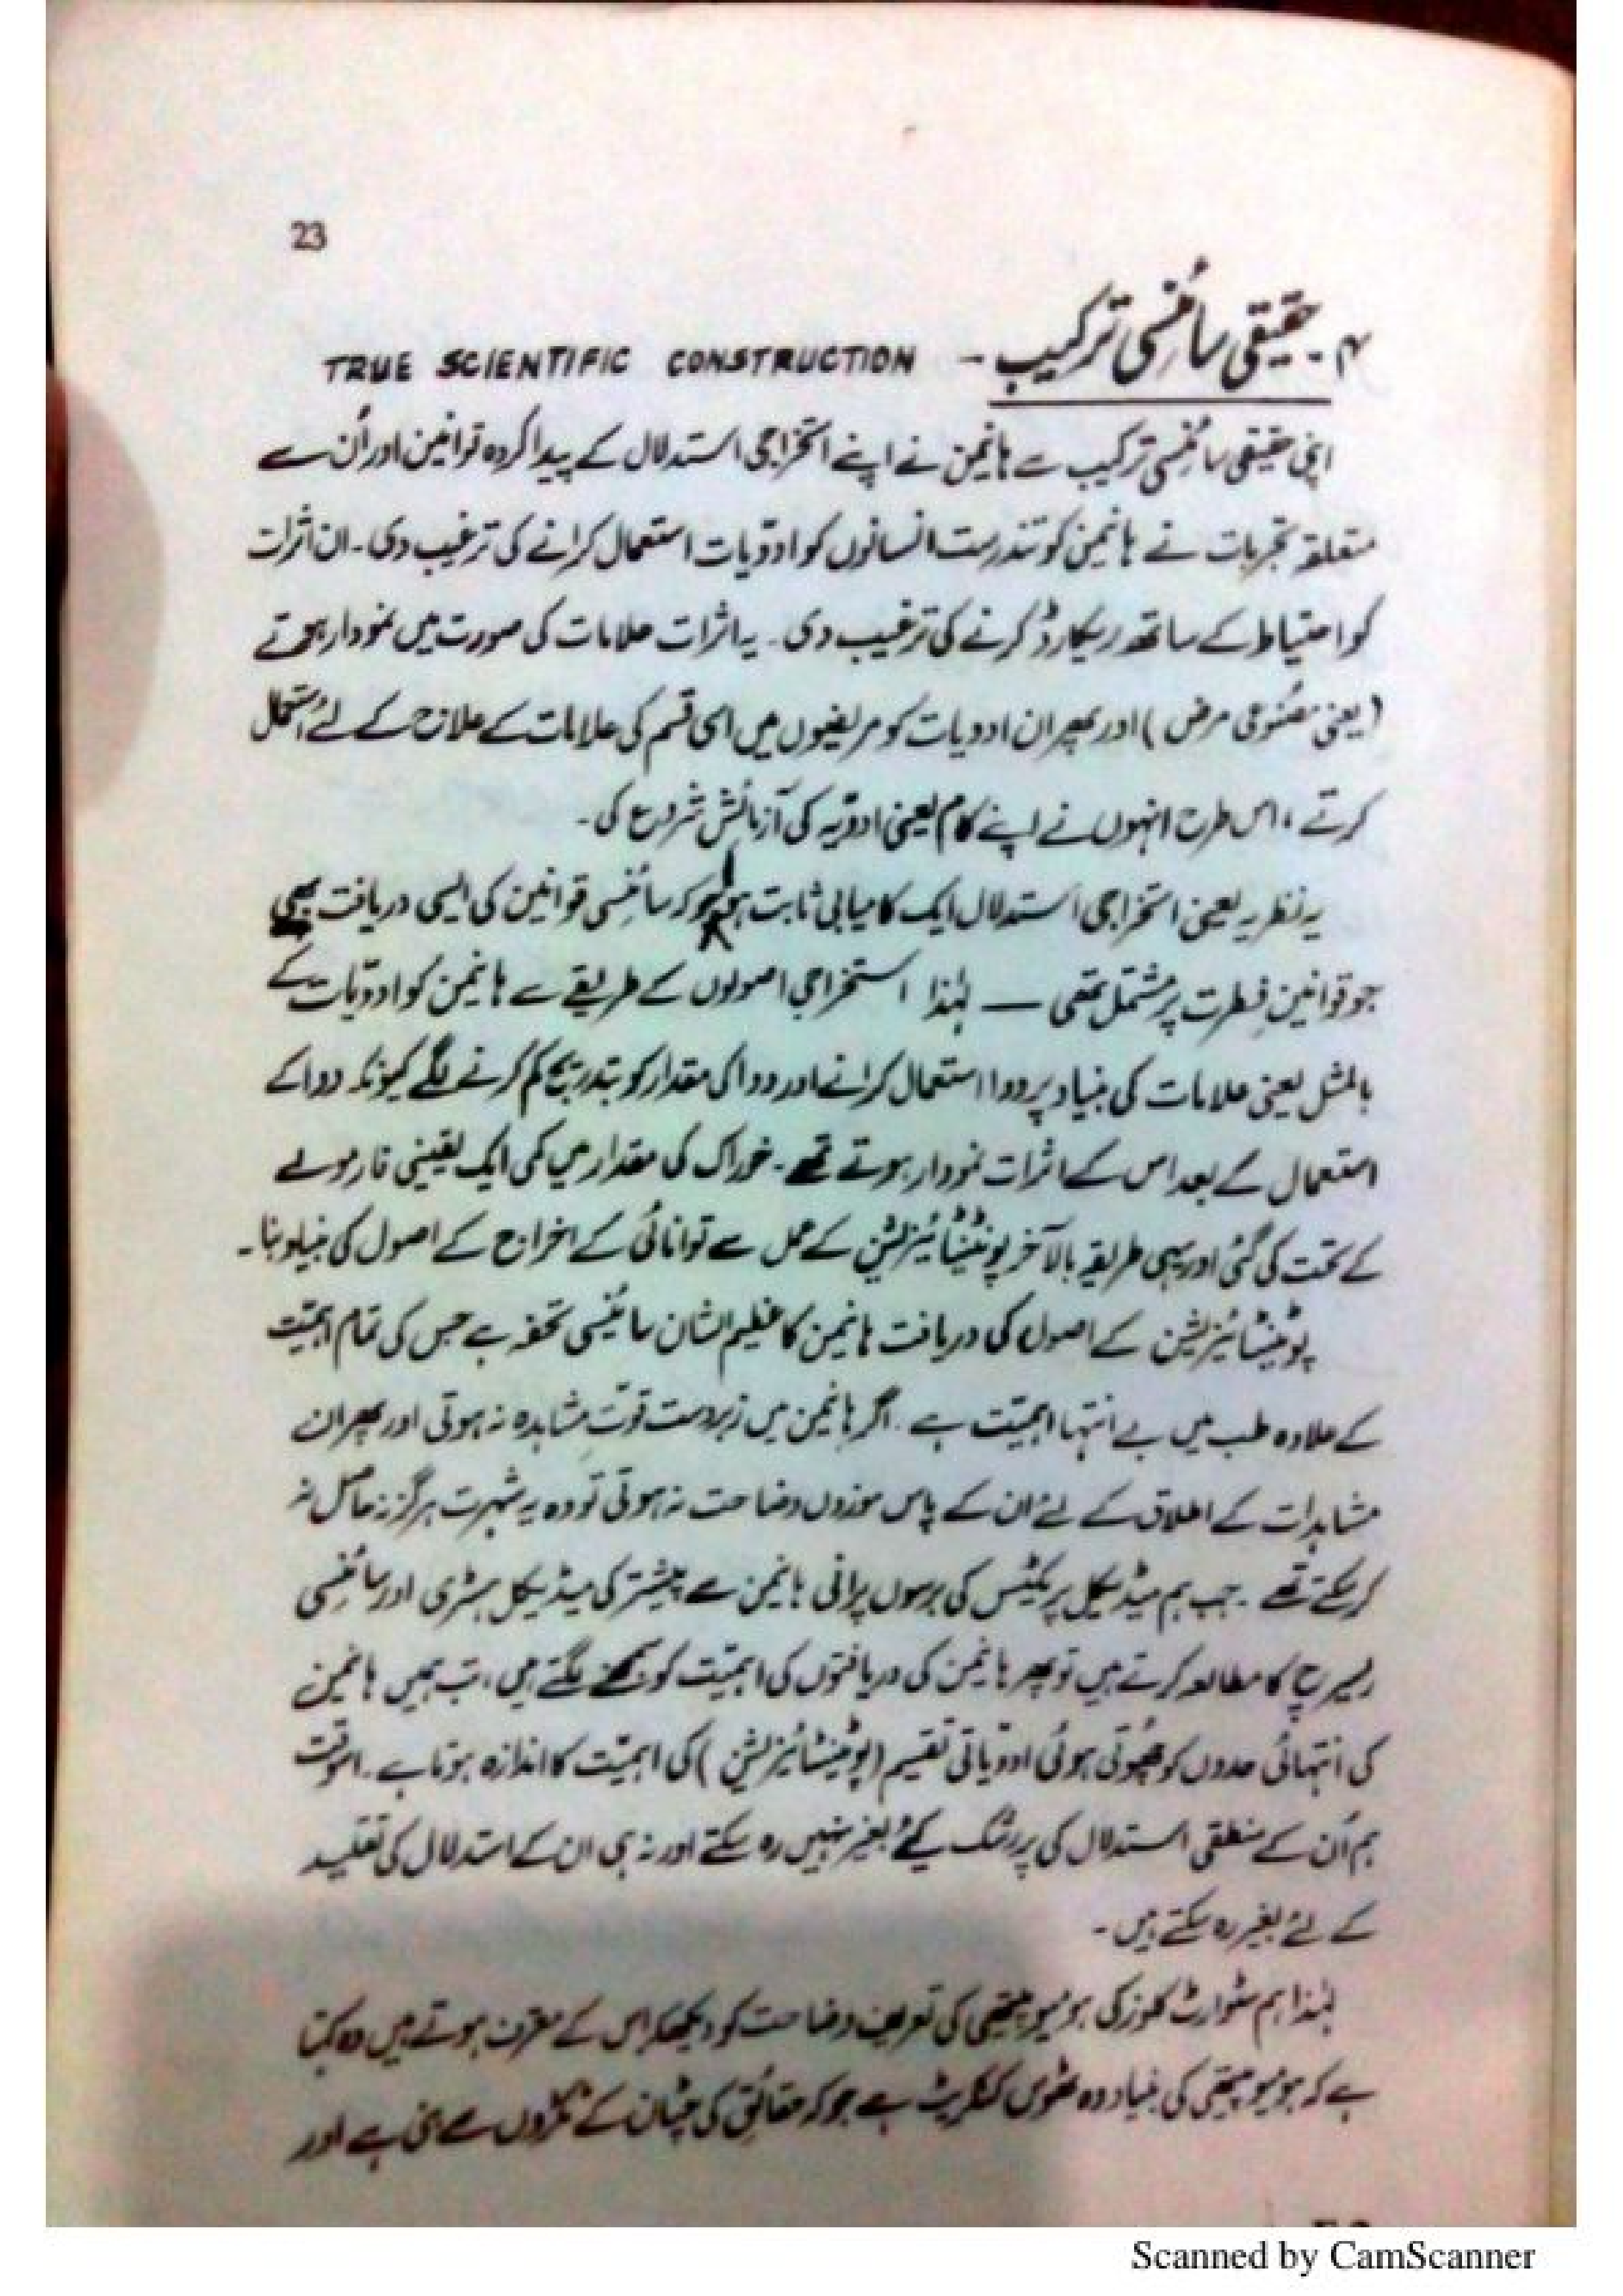 23
۴ ۔ حقیقی سائنسی ترکیب ۔ TRUE SCIENTIFIC CONSTRUCTION
اپنی حقیقی سائنسی ترکیب سے ہانیمن نے اپنے استخراجی استدلال کے پیدا کردہ قوانین اور اُن سے
متعلقہ تجربات نے ہانیمن کو تندرست انسانوں کو ادویات استعمال کرانے کی ترغیب دی۔ ان اثرات
کو احتیاط کے ساتھ ریکارڈ کرنے کی ترغیب دی۔ یہ اثرات علامات کی صورت میں نمودار ہوتے
(یعنی مصنوعی مرض) اور پھر ان ادویات کو مریضوں میں اسی قسم کی علامات کے علاج کے لئے استعمال
کرتے، اس طرح انہوں نے اپنے کام یعنی ادویہ کی آزمائش شروع کی۔
یہ نظریہ یعنی استخراجی استدلال ایک کامیابی ثابت ہوا جو کہ سائنسی قوانین کی ایسی دریافت تھی
جو قوانین فِطرت پر مشتمل تھی — لہٰذا استخراجی اصولوں کے طریقے سے ہانیمن کو ادویات کے
بالمثل یعنی علامات کی بنیاد پر دوا استعمال کرانے اور دوا کی مقدار کو بتدریج کم کرنے لگے کیونکہ دوا کے
استعمال کے بعد اس کے اثرات نمودار ہوتے تھے۔ خوراک کی مقدار میں کمی ایک یقینی فارمولے
کے تحت کی گئی اور یہی طریقہ بالآخر پوٹینٹائیزیشن کے عمل سے توانائی کے اخراج کے اصول کی بنیاد بنا۔
پوٹینٹائیزیشن کے اصول کی دریافت ہانیمن کا عظیم الشان سائنسی تحفہ ہے جس کی تمام اہمیّت
کے علاوہ طب میں بے انتہا اہمیّت ہے۔ اگر ہانیمن میں زبردست قوّتِ مشاہدہ نہ ہوتی اور پھر ان
مشاہدات کے اطلاق کے لئے ان کے پاس موزوں وضاحت نہ ہوتی تو وہ یہ شہرت ہرگز نہ حاصل نہ
کر سکتے تھے۔ جب ہم میڈیکل پریکٹس کی برسوں پرانی ہانیمن سے پیشتر کی میڈیکل ہسٹری اور سائنسی
ریسرچ کا مطالعہ کرتے ہیں تو پھر ہانیمن کی دریافتوں کی اہمیّت کو سمجھنے لگتے ہیں، تب ہمیں ہانیمن
کی انتہائی حدوں کو چھُوتی ہوئی ادویاتی تقسیم (پوٹینٹائیزیشن) کی اہمیّت کا اندازہ ہوتا ہے۔ اسوقت
ہم اُن کے منطقی استدلال کی پر رشک کیے بغیر نہیں رہ سکتے اور نہ ہی ان کے استدلال کی تقلید
کے لئے بغیر رہ سکتے ہیں۔
لہٰذا ہم سٹوارٹ کلوز کی ہومیوپیتھی کی تعریف وضاحت کو دیکھکر اس کے معترف ہوتے ہیں وہ کہتا
ہے کہ ہومیوپیتھی کی بنیاد وہ ٹھوس کنکریٹ ہے جو کہ حقائق کی چٹان کے ٹکڑوں سے بنی ہے اور
Scanned by CamScanner